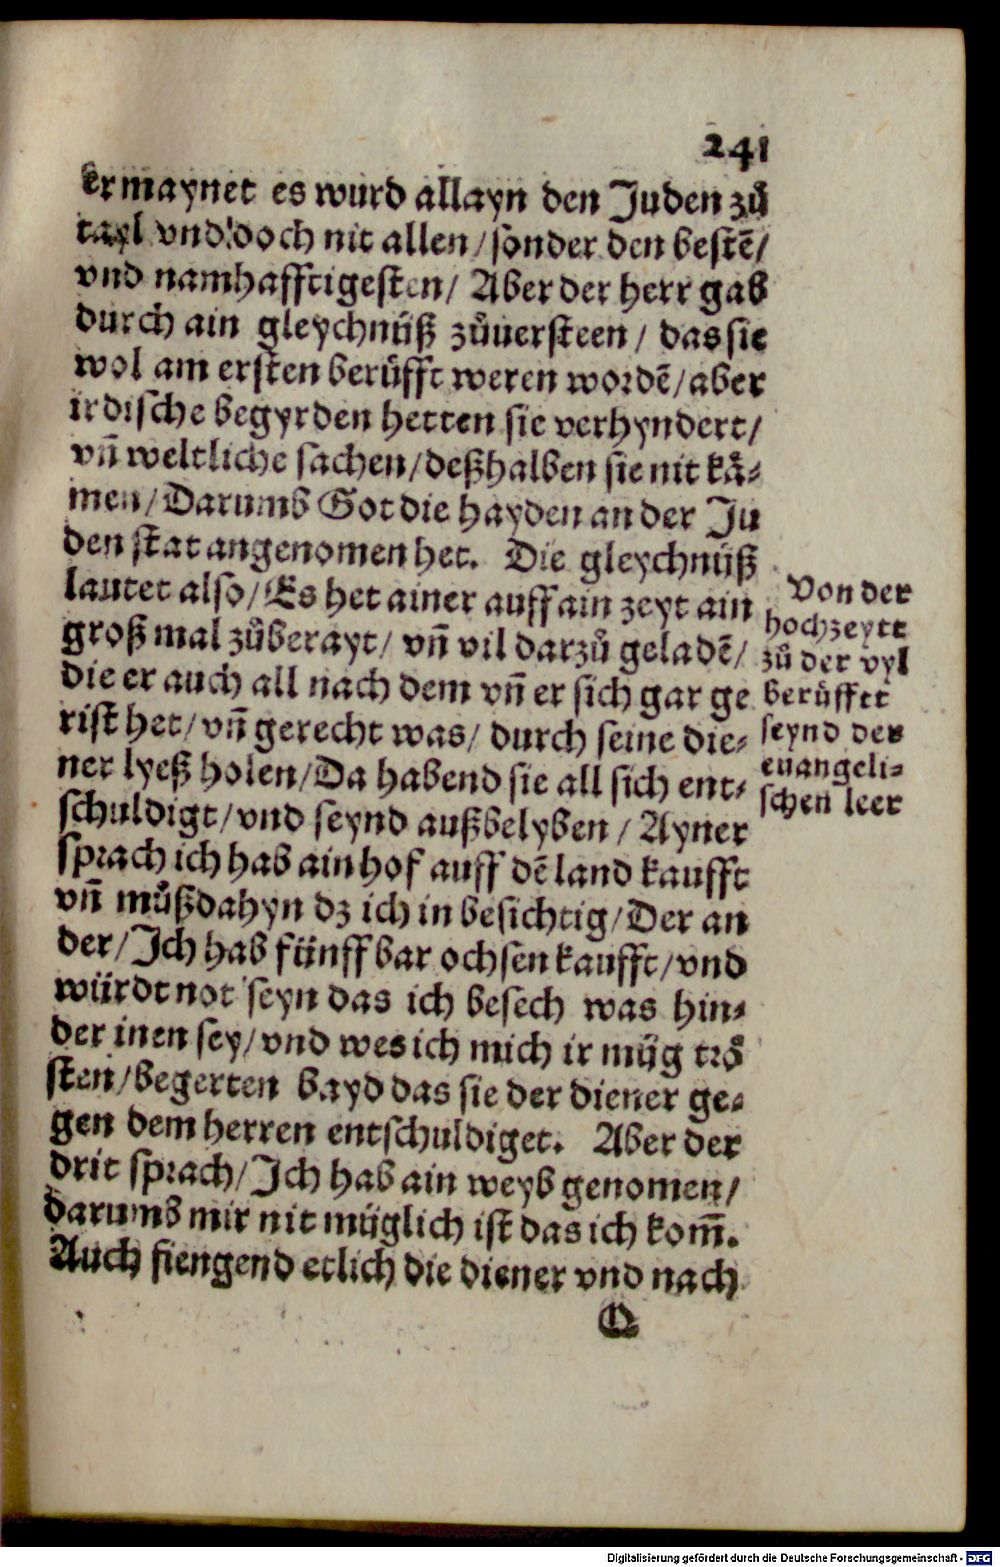 241
Er maynet es wurd allayn den Juden zuͦ
tayl vnd doch nit allen / sonder den bestē /
vnd namhafftigesten / Aber der herr gab
durch ain gleychnüß zuͦuersteen / das sie
wol am ersten beruͤfft weren wordē / aber
irdische begyrden hetten sie verhyndert /
vn̄ weltliche sachen / deßhalben sie nit kaͤ⸗
men / Darumb Got die hayden an der Ju
den stat angenomen het. Die gleychnüß
lautet also / Es het ainer auff ain zeyt ain
groß mal zuͦberayt / vn̄ vil darzuͦ geladē /
die er auch all nach dem vn̄ er sich gar ge
rist het / vn̄ gerecht was / durch seine die⸗
ner lyeß holen / Da habend sie all sich ent⸗
schuldigt / vnd seynd außbelyben / Ayner
sprach ich hab ain hof auff dē land kaufft
vn̄ muͦß dahyn dz ich in besichtig / Der an
der / Ich hab fünff bar ochsen kaufft / vnd
würdt not seyn das ich besech was hin⸗
der inen sey / vnd wes ich mich ir müg troͤ
sten / begerten bayd das sie der diener ge⸗
gen dem herren entschuldiget. Aber der
drit sprach / Ich hab ain weyb genomen /
darumb mir nit müglich ist das ich kom̄.
Auch fiengend etlich die diener vnd nach
Q
Von der
hochzeytt
zuͦ der vyl
beruͤfftt
seynd der
euangeli⸗
schen leer
Digitalisierung gefördert durch die Deutsche Forschungsgemeinschaft - DFG